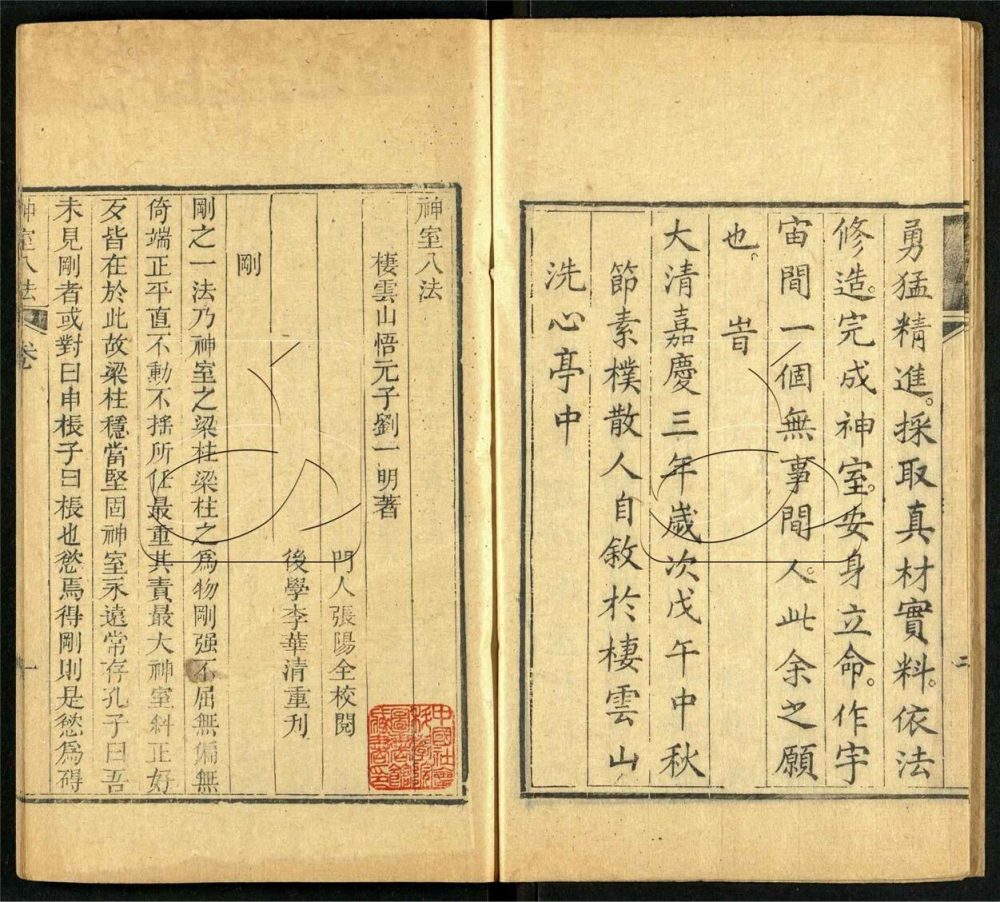 勇猛精進。採取真材實料。依法
修造。完成神室。安身立命。作宇
宙間一個無事閒人。此余之願
也。旹
大清嘉慶三年歲次戊午中秋
節素樸散人自敘於棲雲山
洗心亭中
二
神室八法
棲雲山悟元子劉一明著
門人張陽全校閱
後學李華清重刋
剛
剛之一法乃神室之梁柱梁柱之爲物剛强不屈無偏無
倚端正平直不動不搖所任最重其責最大神室斜正好
歹皆在於此故梁柱穩當堅固神室永遠常存孔子曰吾
未見剛者或對曰申棖子曰棖也慾焉得剛則是慾爲碍
神室八法 卷 一